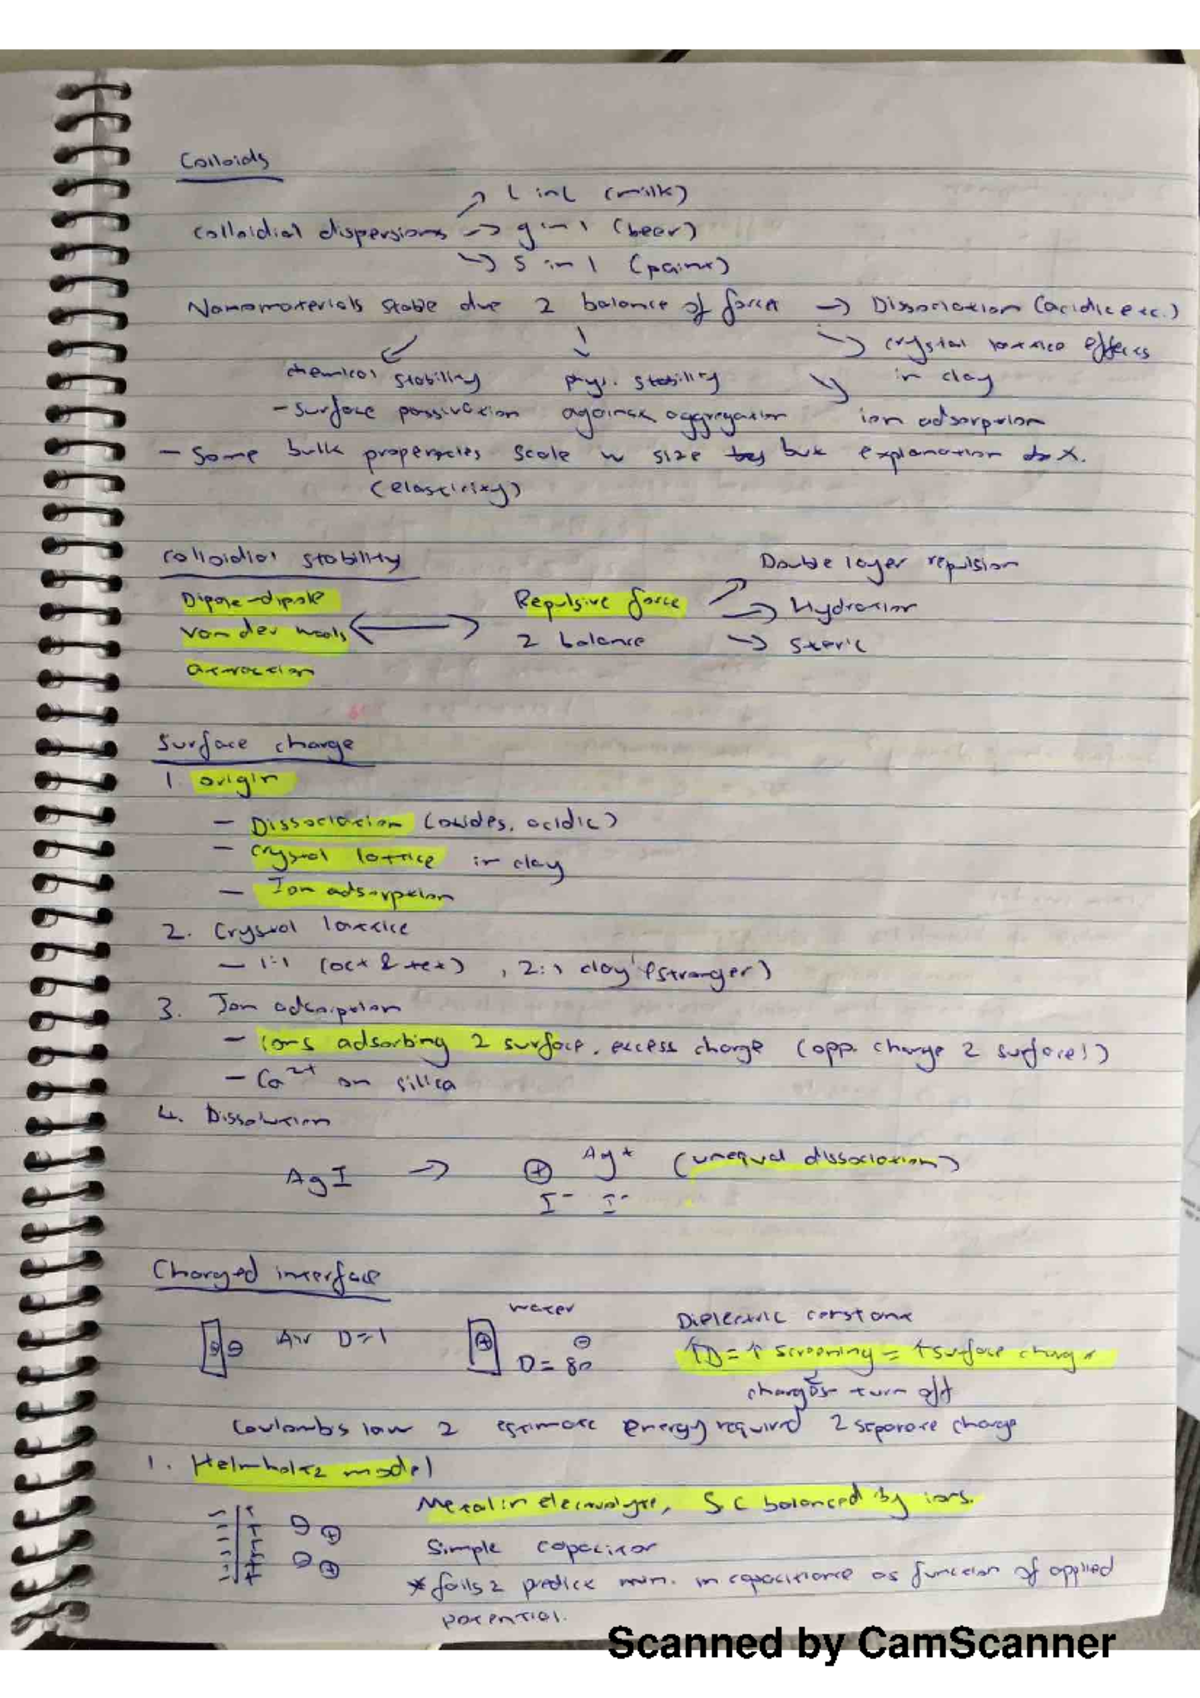 Colloids
L in L (milk)
Colloidial dispersions → g in l (beer)
↳ S in l (paint)
Nanomaterials stable due 2 balance of force → Dissociation (acidic etc.)
↳ crystal lattice effects
in clay
chemical stability phys. stability
- surface passivation against aggregation ion adsorption
- Some bulk properties scale w size but explanation X.
(elasticity)
Colloidial stability
Double layer repulsion
Dipole-dipole Repulsive force → Hydration
van der waals 2 balance → steric
attraction
Surface charge
1. origin
- Dissociation (oxides, acidic)
- Crystal lattice in clay
- Ion adsorption
2. Crystal lattice
- 1:1 (oct & tet), 2:1 clay (stronger)
3. Ion adsorption
- ions adsorbing 2 surface, excess charge (opp. charge 2 surface!)
- Ca2+ on silica
4. Dissolution
AgI → ⊕ Ag+ (unequal dissociation)
I- I-
Charged interface
water
Dielectric constant
⊖ Air D=1 ⊕ ⊖ D=80
↑D = ↑ screening = ↑ surface charge
charges turn off
Coulombs law 2 estimate energy required 2 separate charge
1. Helmholtz model
Metal in electrolyte, SC balanced by ions.
Simple capacitor
* fails 2 predict min. in capacitance as function of applied
potential.
Scanned by CamScanner